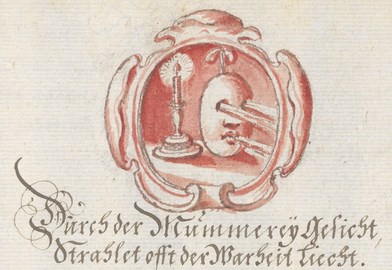 Durch der Mummerey Gesicht,
Strahlet offt der Warheit Liecht.